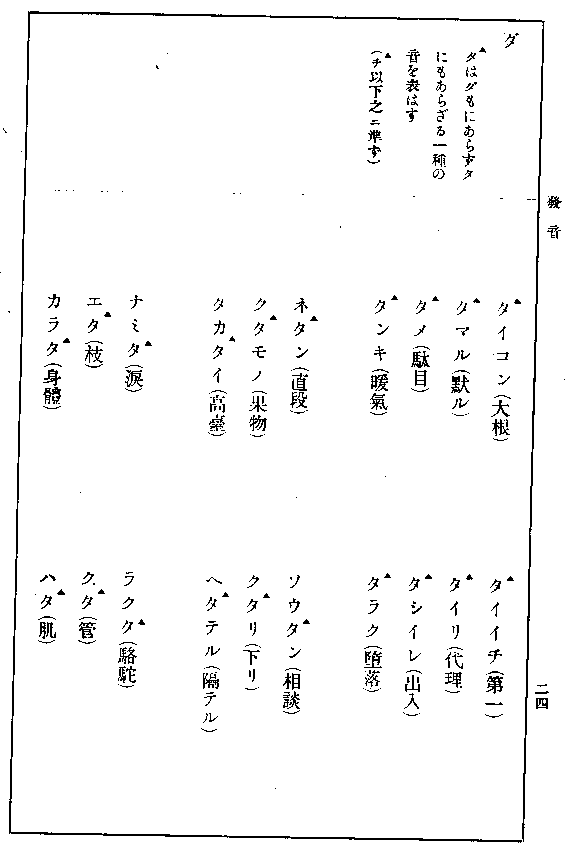 發音
二四
ダ
タ▲はダもにあらずタ
にもあらざる一種の
音を表はす
(チ▲以下之ニ準ず)
タ▲イコン(大根)
タ▲マル(默ル)
タ▲メ(駄目)
タ▲ンキ(暖氣)
ネタ▲ン(直段)
クタ▲モノ(果物)
タカタ▲イ(高臺)
ナミタ▲(涙)
エタ▲(枝)
カラタ▲(身體)
タ▲イイチ(第一)
タ▲イリ(代理)
タ▲シイレ(出入)
タ▲ラク(墮落)
ソウタ▲ン(相談)
クタ▲リ(下リ)
ヘタ▲テル(隔テル)
ラクタ▲(駱駝)
クタ▲(管)
ハタ▲(肌)